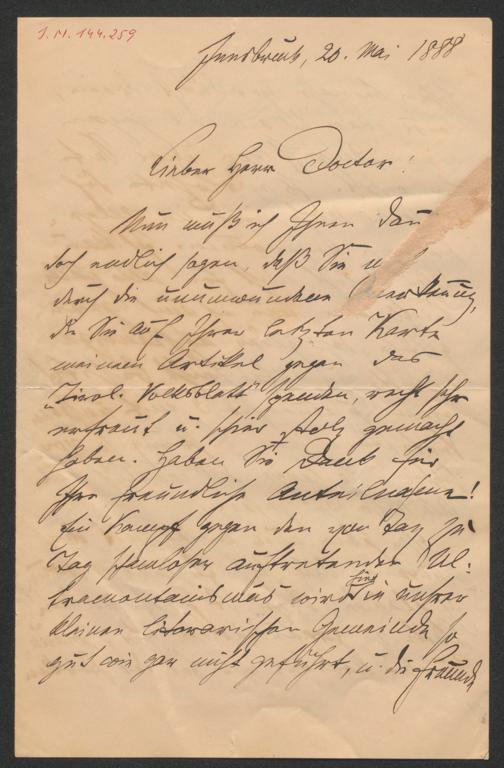 J. N. 144.259
Innsbruck, 20. Mai 1888
Lieber Herr Doctor!
Nun muß ich Ihnen denn
doch endlich sagen, daß Sie
durch die unumwundene Anerkennung,
die Sie auf Ihrer letzten Karte
meinem Artikel gegen das
„Tirol. Volksblatt" spenden, recht sehr
erfreut u. schier stolz gemacht
haben. Haben Sie Dank für
Ihre freundliche Anteilnahme!
Ein Kampf gegen den von Tag zu
Tag schamloser auftretenden Ul-
tramontanismus wird hier in unserer
kleinen literarischen Gemeinde so
gut wie gar nicht geführt, u. die Freunde